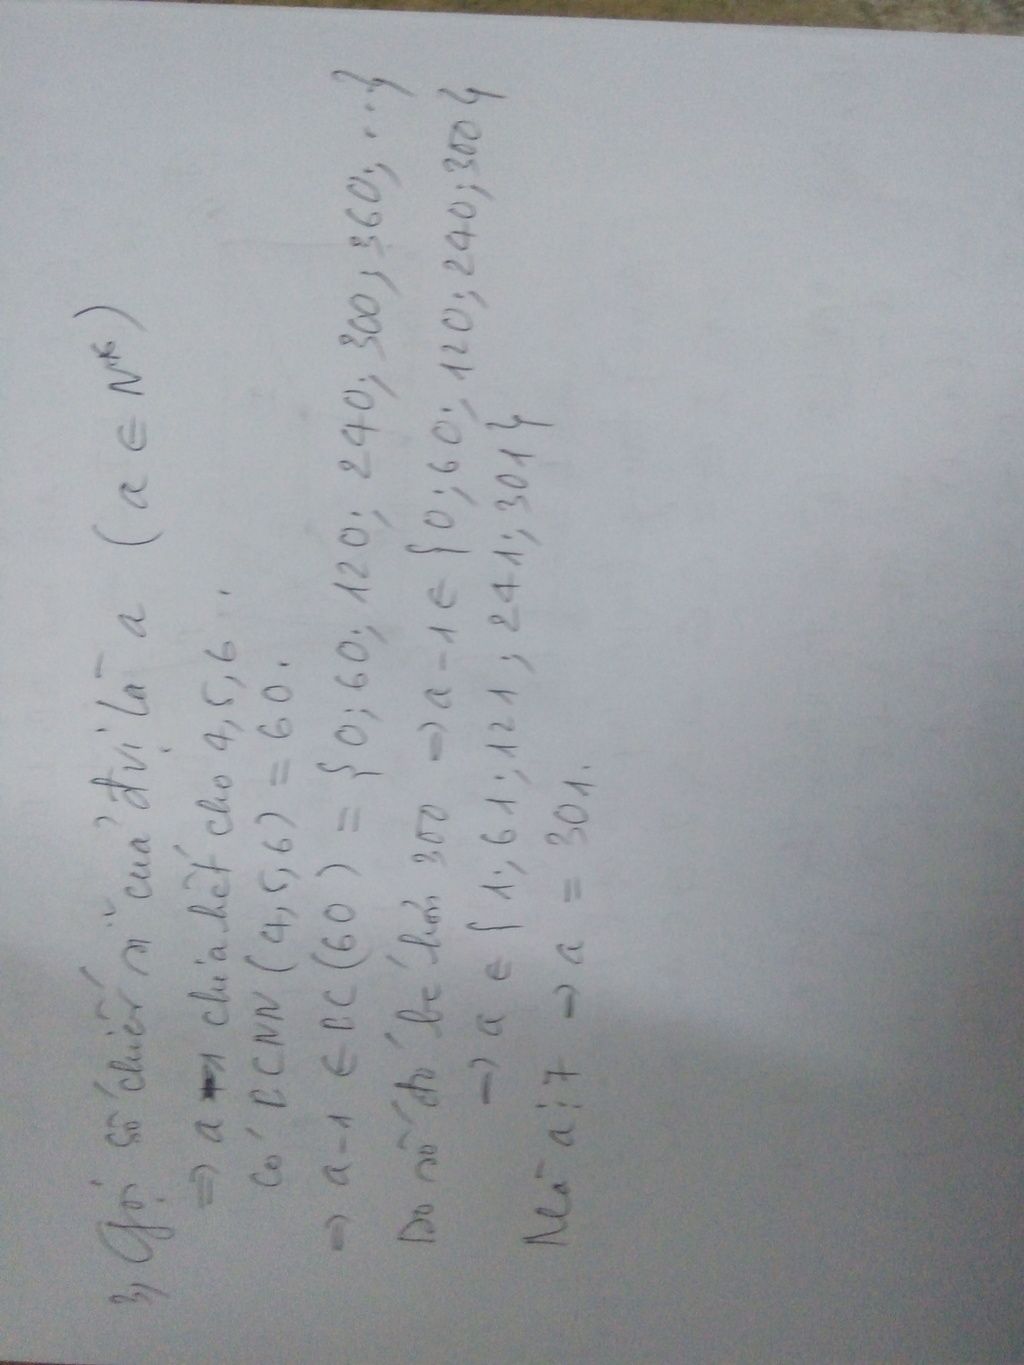 3, Gọi số chiến sĩ của đvị là a (a ∈ N*)
=> a - 1 chia hết cho 4,5,6.
Có BCNN (4,5,6) = 60.
=> a-1 ∈ BC(60) = {0; 60; 120; 240; 300; 360; ...}
Do số đó bé hơn 300 => a-1 ∈ {0; 60; 120; 240; 300}
=> a ∈ {1; 61; 121; 241; 301}
Mà a ⋮ 7 => a = 301.